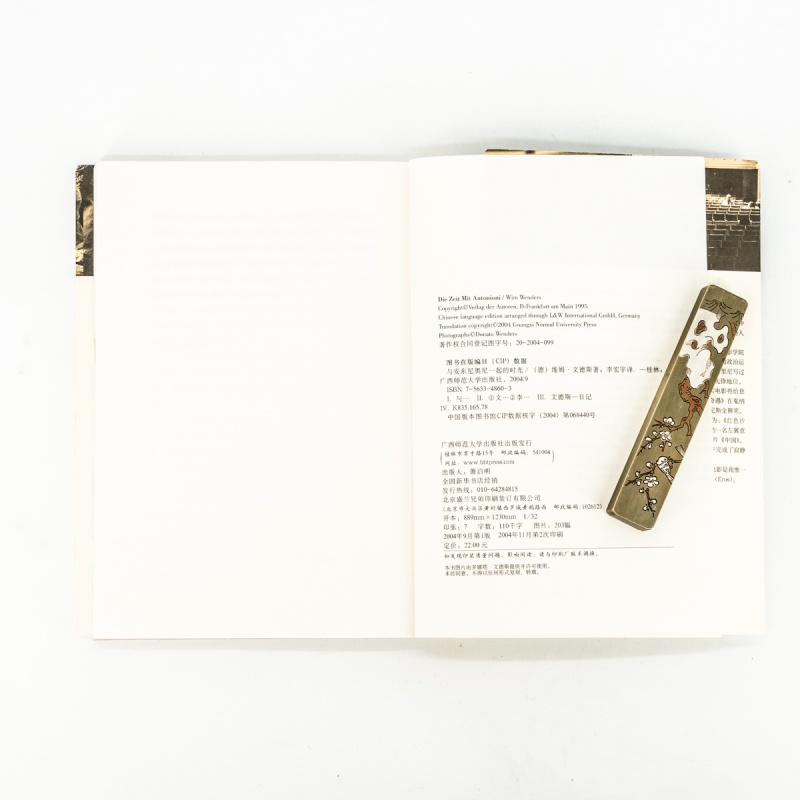 Die Zeit Mit Antonioni / Wim Wenders
Copyright©Verlag der Autoren, D-Frankfurt am Main 1995
Chinese language edition arranged through L&W International GmbH, Germany
Translation copyright©2004 Guangxi Normal University Press
Photographs©Donata Wenders
著作权合同登记图字号：20-2004-099
图书在版编目（CIP）数据
与安东尼奥尼一起的时光／（德）维姆·文德斯著；李宏宇译．—桂林：
广西师范大学出版社，2004.9
ISBN 7-5633-4860-3
Ⅰ.与… Ⅱ.①文…②李… Ⅲ.文德斯—日记
Ⅳ. K835.165.78
中国版本图书馆CIP数据核字（2004）第068440号
广西师范大学出版社出版发行
桂林市育才路15号 邮政编码：541004
网址：www.bbtpress.com
出版人：萧启明
全国新华书店经销
发行热线：010-64284815
北京盛兰兄弟印刷装订有限公司
（北京市大兴区黄村镇西芦城黄鹅路西 邮政编码：102612）
开本：889mm×1230mm 1/32
印张：7 字数：110千字 图片：203幅
2004年9月第1版 2004年11月第2次印刷
定价：22.00元
如发现印装质量问题，影响阅读，请与印刷厂联系调换。
本书图片由多娜塔·文德斯提供并许可使用。
未经同意，不得以任何形式复制、转载。
学院
政治运
里尼写过
先锋地位。
电影将给意
遇》在戛纳
尼斯金狮奖。
为：《红色沙
一名左翼意
片《中国》。
完成了寂静
影是我惟一
（Eros）。